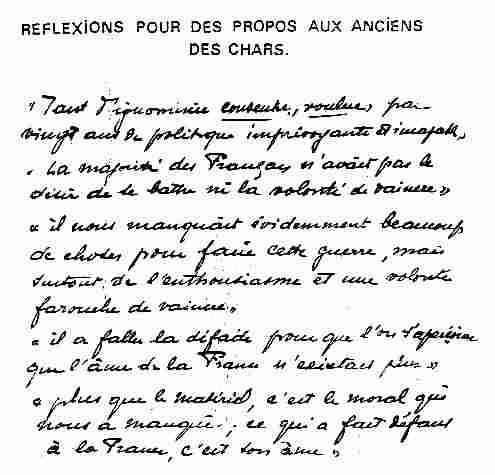 REFLEXIONS POUR DES PROPOS AUX ANCIENS
DES CHARS.
« Tant d'ignominie consentie, voulue, par
vingt ans de politique imprévoyante et incapable,
« La majorité des Français n'avait pas le
désir de se battre ni la volonté de vaincre »
« il nous manquait évidemment beaucoup
de choses pour faire cette guerre, mais
surtout de l'enthousiasme et une volonté
farouche de vaincre »
« il a fallu la défaite pour que l'on s'aperçoive
que l'âme de la France n'existait plus »
« plus que le matériel, c'est le moral qui
nous a manqué ; ce qui a fait défaut
à la France, c'est son âme »